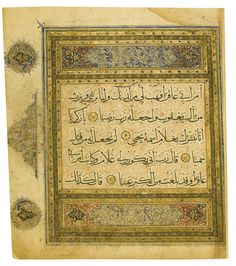 امرأتي عاقرا فهب لي من لدنك وليا يرثني ويرث
من آل يعقوب واجعله رب رضيا يا زكريا
إنا نبشرك بغلام اسمه يحيى لم نجعل له من قبل
سميا قال رب أنى يكون لي غلام وكانت امرأتي
عاقرا وقد بلغت من الكبر عتيا قال كذلك